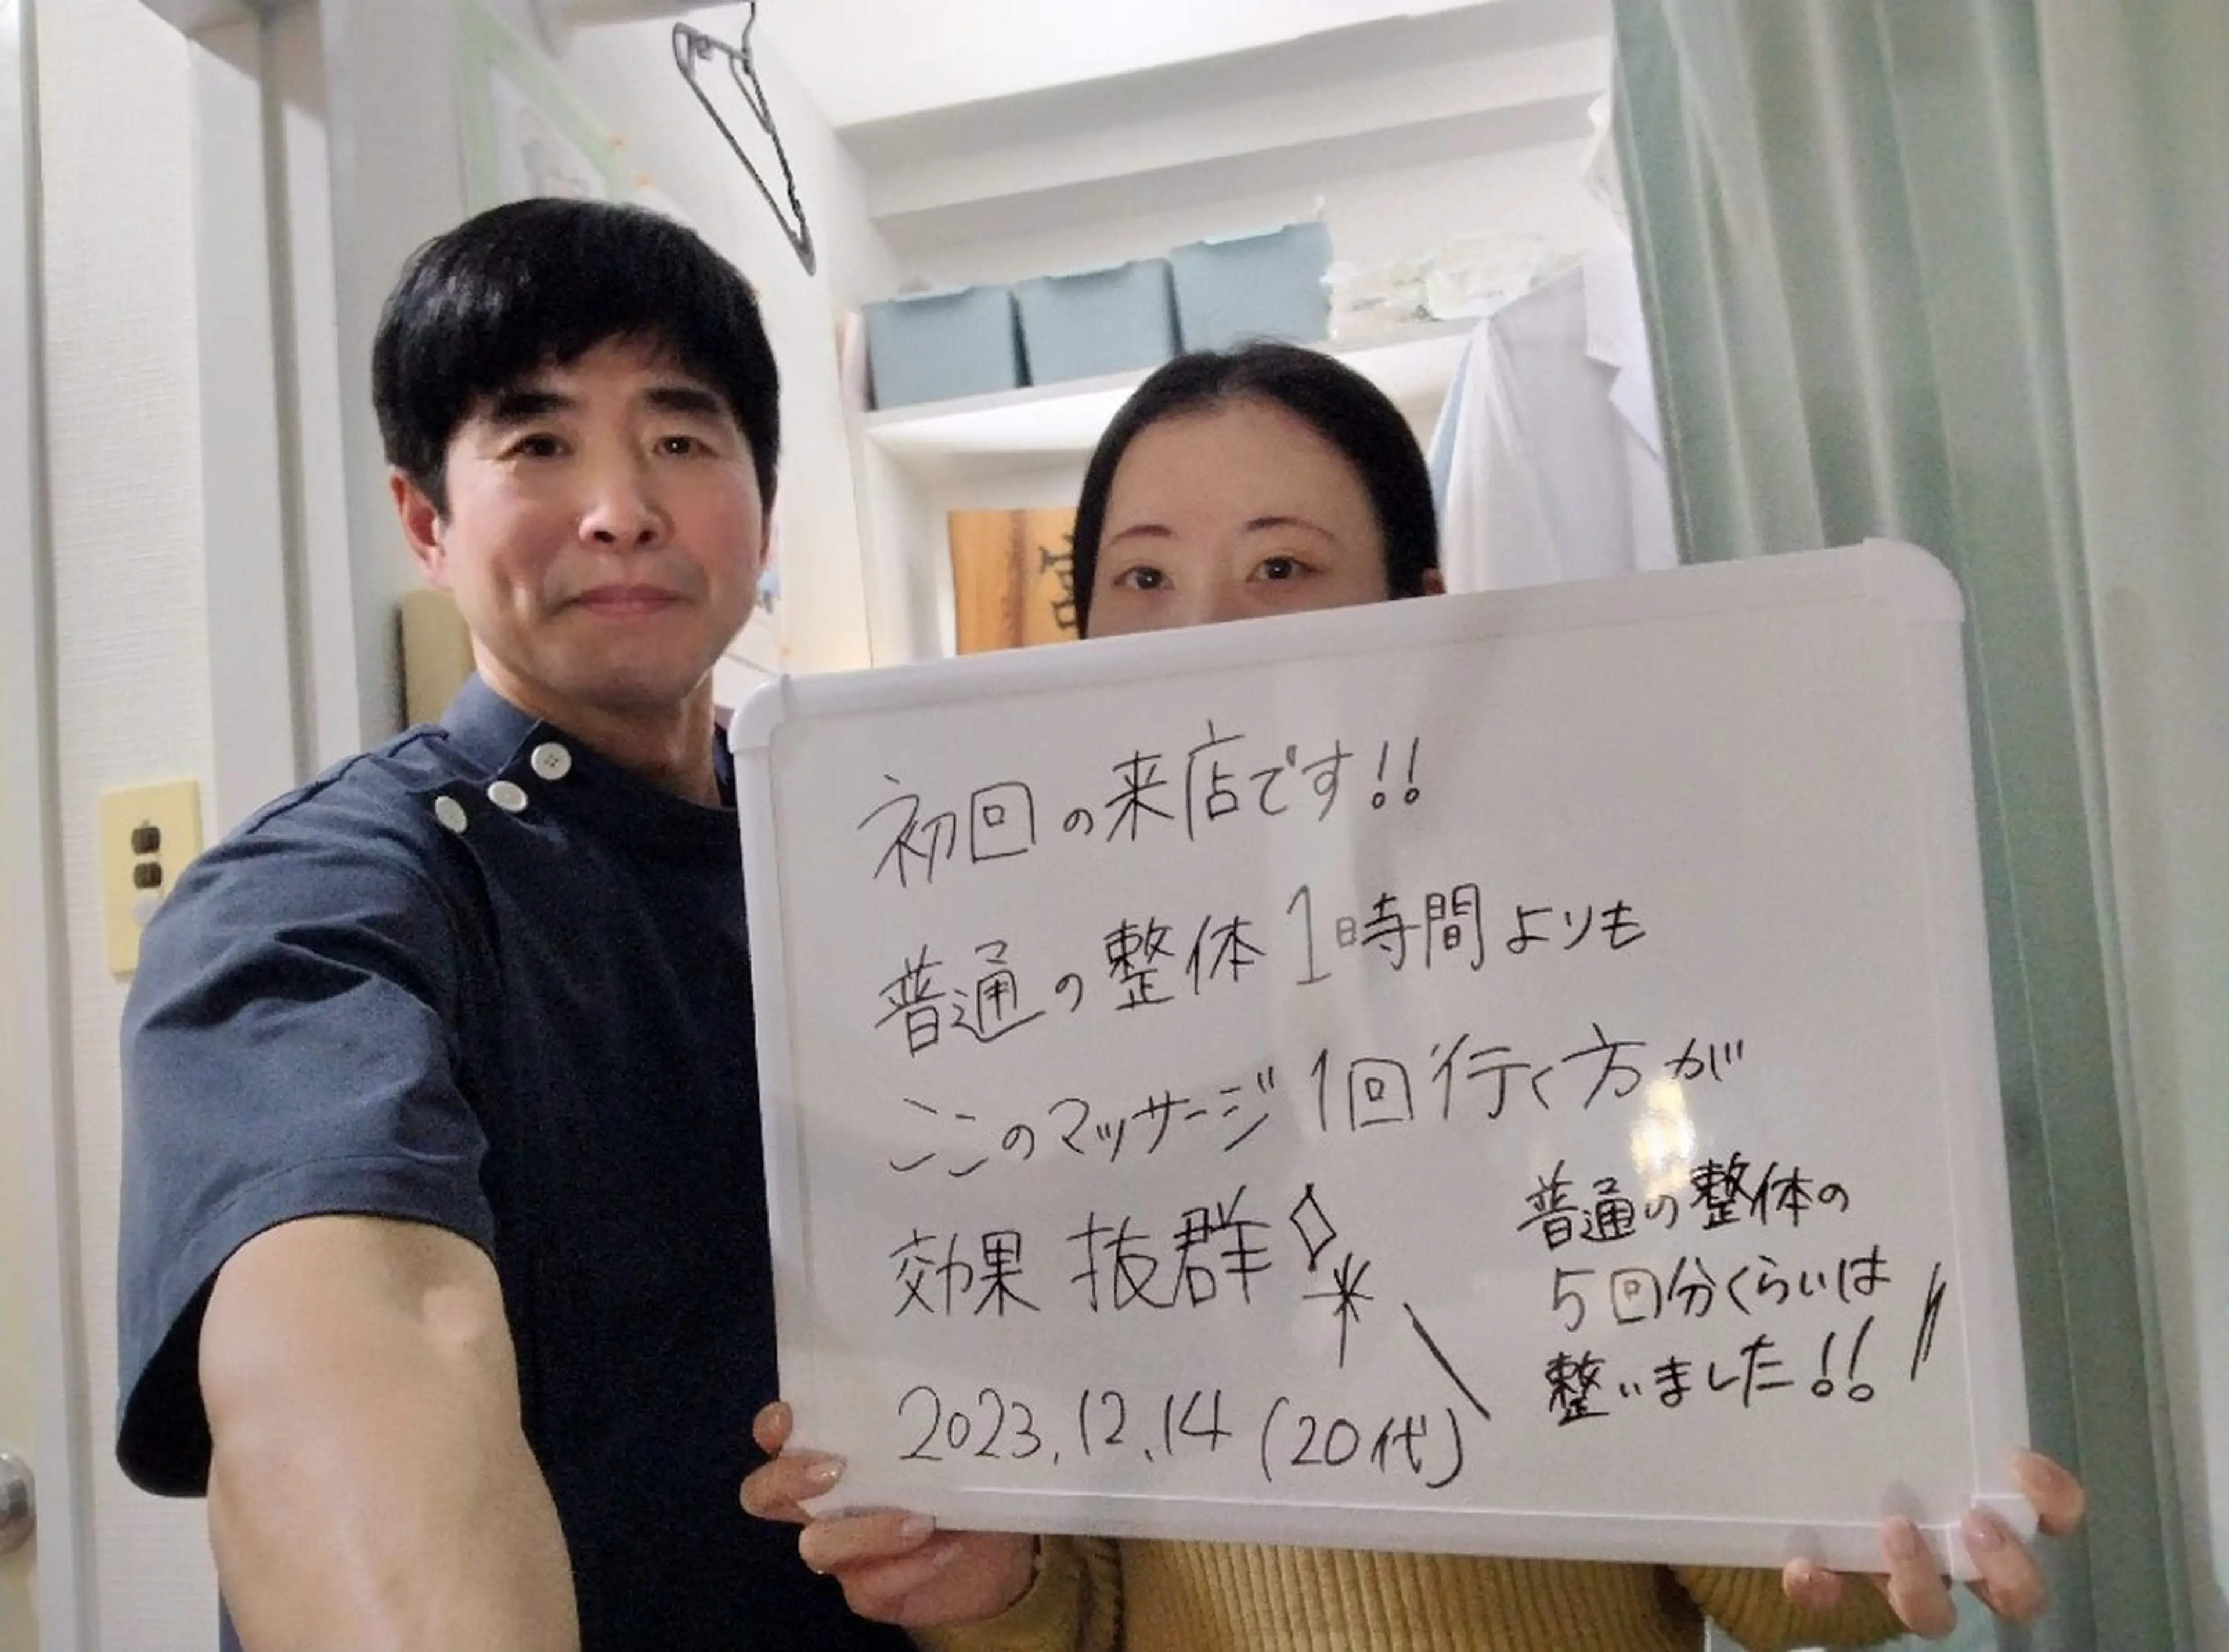 初回の来店です!!
普通の整体1時間よりも
ここのマッサージ1回行く方が
効果抜群
普通の整体の
5回分くらいは
整いました!!
2023.12.14(20代)